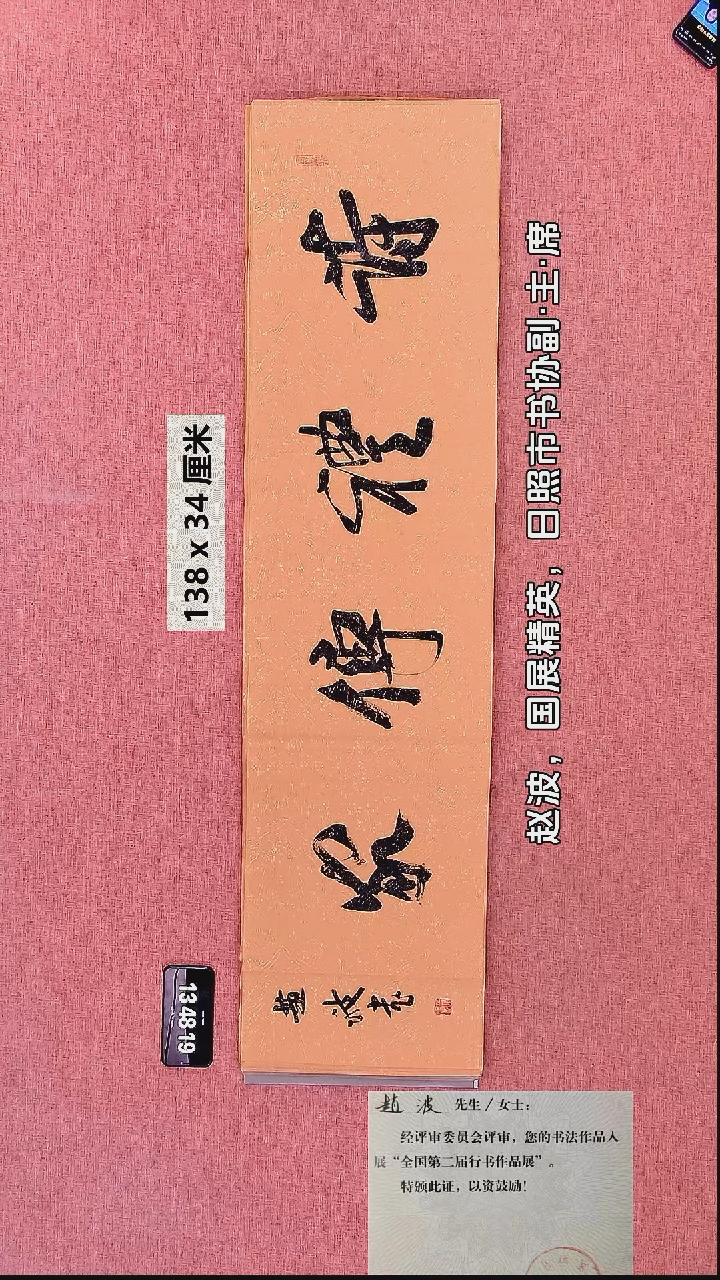 詩禮傳家
趙波书
138 x 34 厘米
赵波，国展精英，日照市书协副·主·席
13:48:19
趙 波 先生／女士：
经评审委员会评审，您的书法作品入
展“全国第二届行书作品展”。
特颁此证，以资鼓励！